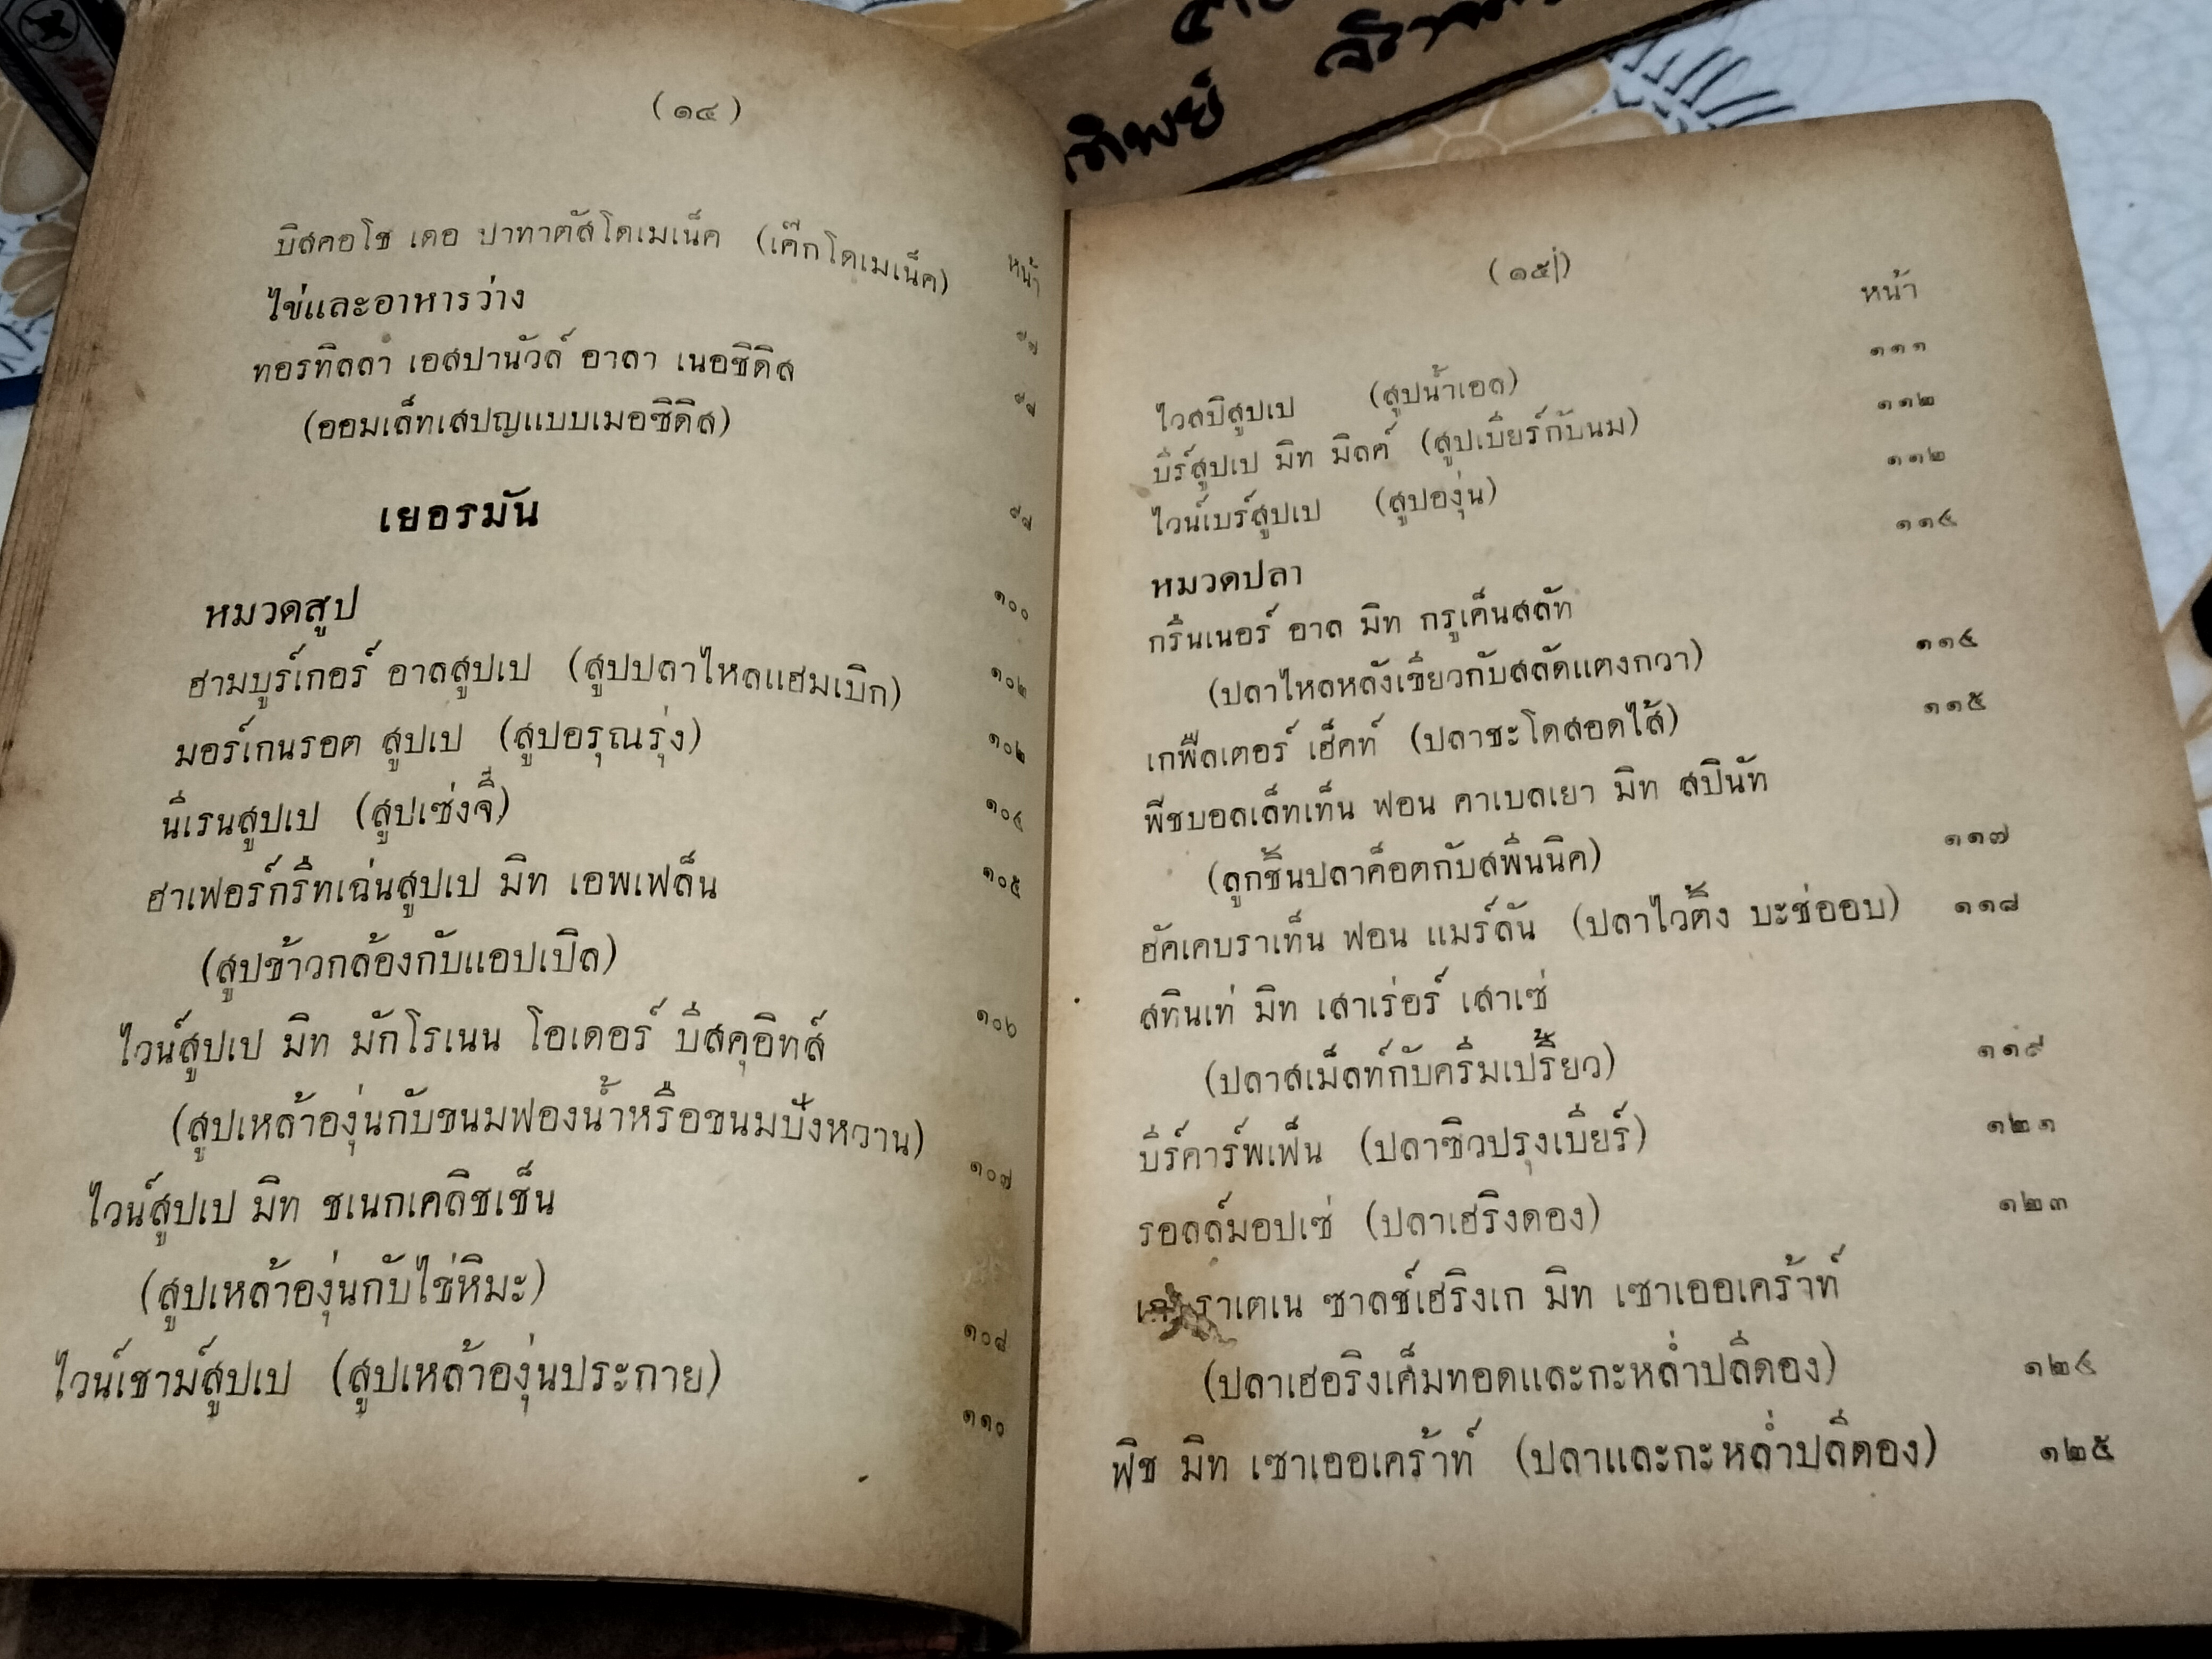 (๑๔)
หน้า
บิสคอโช เดอ ปาทาตัสโดเมเน็ค (เค๊กโดเมเน็ค) ๙๗
ไข่และอาหารว่าง ๙๘
ทอรทิลลา เอสปานัวล์ อาลา เนอซิดิส
(ออมเล็ทเสปญแบบเมอซิดิส) ๙๘
เยอรมัน
หมวดสูป ๑๐๐
ฮามบูร์เกอร์ อาลสูปเป (สูปปลาไหลแฮมเบิก) ๑๐๒
มอร์เกนรอต สูปเป (สูปอรุณรุ่ง) ๑๐๒
นี่เรนสูปเป (สูปเซ่งจี๊) ๑๐๔
ฮาเฟอร์กรืทเฉ่นสูปเป มิท เอพเฟล็น ๑๐๕
(สูปข้าวกล้องกับแอปเปิล)
ไวน์สูปเป มิท มักโรเนน โอเดอร์ บิสคุอิทส์ ๑๐๖
(สูปเหล้าองุ่นกับขนมฟองน้ำหรือขนมปังหวาน)
ไวน์สูปเป มิท ชเนกเคลิชเช็น ๑๐๗
(สูปเหล้าองุ่นกับไข่หิมะ) ๑๐๘
ไวน์เชาม์สูปเป (สูปเหล้าองุ่นประกาย) ๑๑๐
(๑๕)
หน้า
ไวสบีสูปเป (สูปน้ำเอล) ๑๑๑
บีร์สูปเป มิท มิลค์ (สูปเบียร์กับนม) ๑๑๒
ไวน์เบร์สูปเป (สูปองุ่น) ๑๑๒
หมวดปลา ๑๑๔
กรืนเนอร์ อาล มิท กรูเค็นสลัท
(ปลาไหลหลังเขียวกับสลัดแตงกวา) ๑๑๔
เกฟืลเตอร์ เฮ็คท์ (ปลาชะโดสอดไส้) ๑๑๕
ฟีชบอลเล็ทเท็น ฟอน คาเบลเยา มิท สปินัท
(ลูกชิ้นปลาค็อตกับสพินนิค) ๑๑๗
ฮัคเคบราเท็น ฟอน แมร์ลัน (ปลาไวติ้ง บะช่ออบ) ๑๑๘
สทินเท่ มิท เสาเร่อร์ เสาเซ่
(ปลาสเม็ลท์กับครีมเปรี้ยว) ๑๑๙
บีร์คาร์พเฟ็น (ปลาซิวปรุงเบียร์) ๑๒๑
รอลล์มอปเซ่ (ปลาเฮริงดอง) ๑๒๓
ราเตเน ซาลช์เฮริงเก มิท เซาเออเคร้าท์
(ปลาเฮอริงเค็มทอดและกะหล่ำปลีดอง) ๑๒๔
ฟิช มิท เซาเออเคร้าท์ (ปลาและกะหล่ำปลีดอง) ๑๒๕